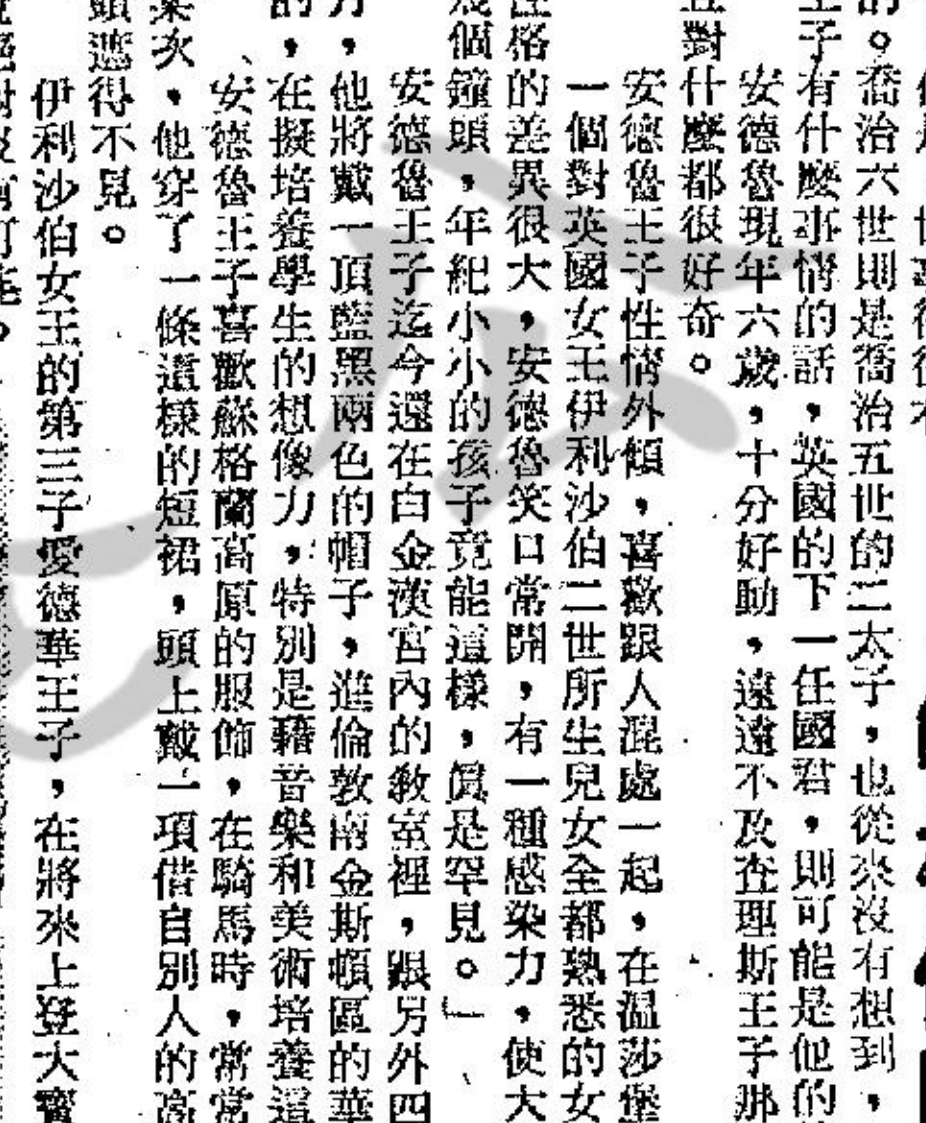 的。喬治六世則是喬治五世的二太子，也從來沒有想到，
王子有什麼事情的話，英國的下一任國君，則可能是他的
安德魯現年六歲，十分好動，遠遠不及查理斯王子那
且對什麼都很好奇。
安德魯王子性情外傾，喜歡跟人混處一起，在溫莎堡
一個對英國女王伊利沙伯二世所生兒女全都熟悉的女
性格的差異很大，安德魯笑口常開，有一種感染力，使大
幾個鐘頭，年紀小小的孩子竟能這樣，眞是罕見。」
安德魯王子迄今還在白金漢宮內的教室裡，跟另外四
方，他將戴一頂藍黑兩色的帽子，進倫敦南金斯頓區的華
的，在擬培養學生的想像力，特別是藉音樂和美術培養這
安德魯王子喜歡蘇格蘭高原的服飾，在騎馬時，常常
築次，他穿了一條這樣的短裙，頭上戴一項借自別人的高
頭遮得不見。
伊利沙伯女王的第三子愛德華王子，在將來上登大寳